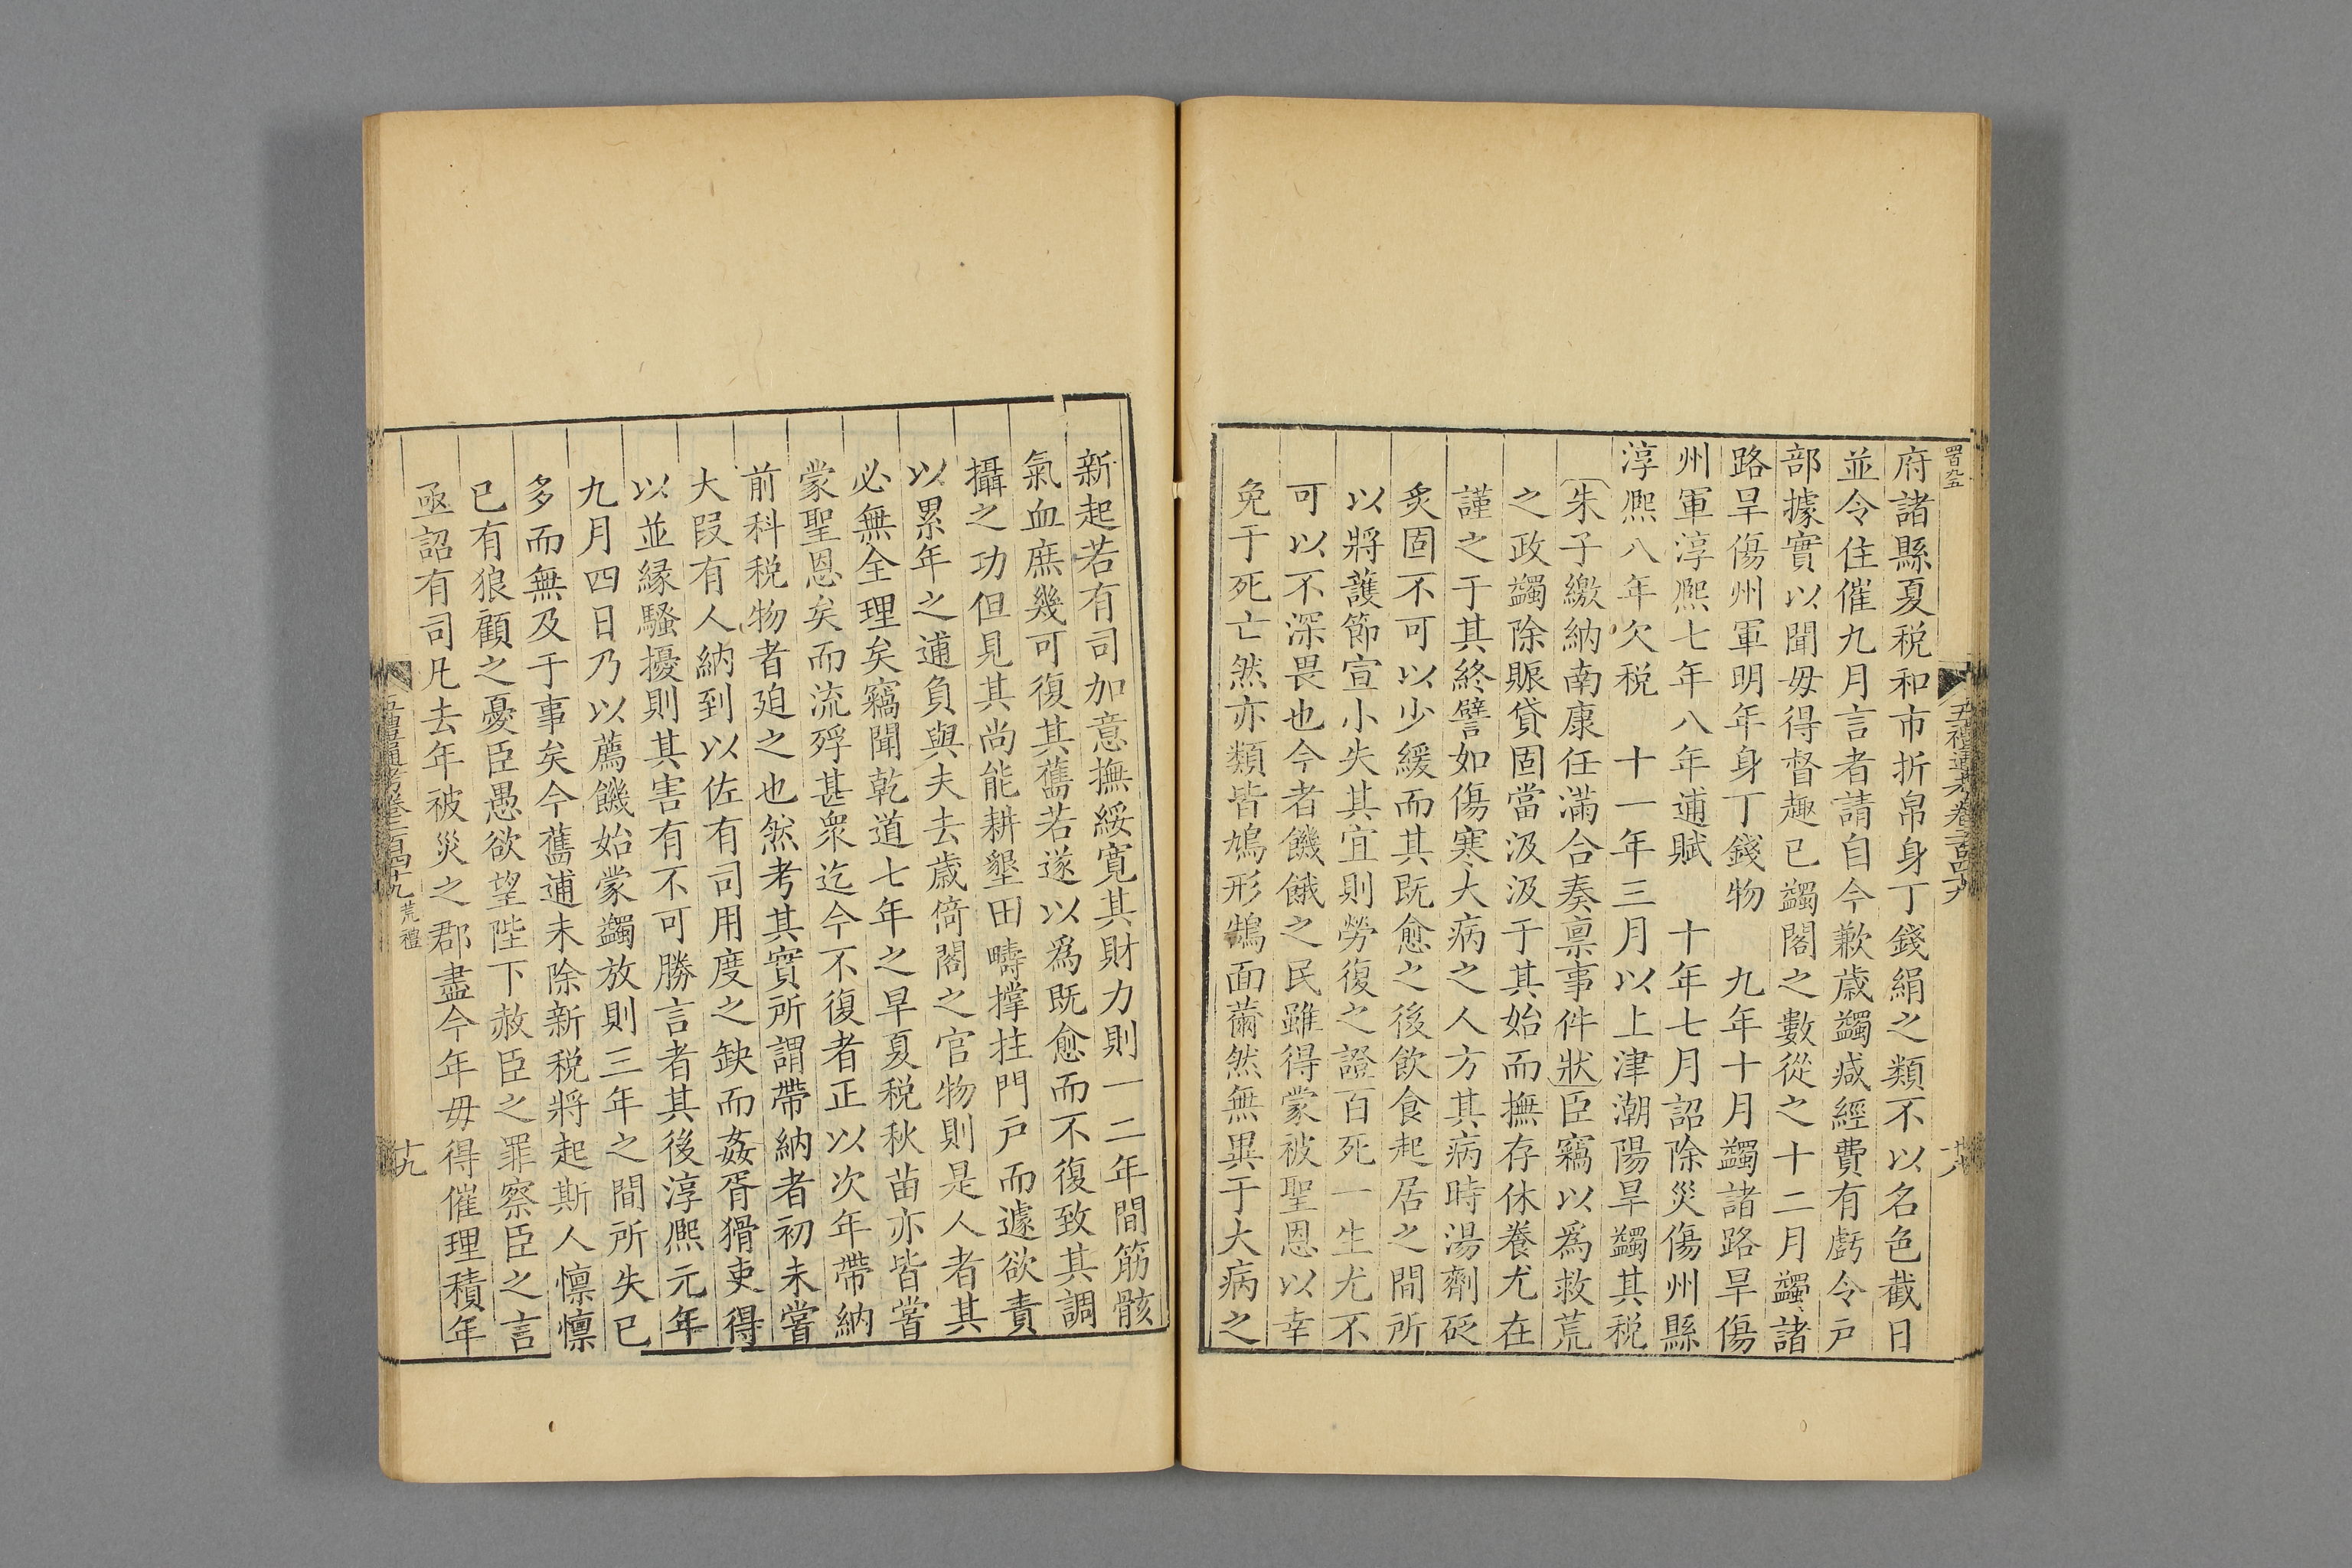 五禮通考卷二百四十九
府諸縣夏稅和市折帛身丁錢絹之類不以名色截日
並令住催九月言者請自今歉歲蠲減經費有虧令戶
部據實以聞毋得督趣已蠲閣之數從之十二月蠲諸
路旱傷州軍明年身丁錢物　九年十月蠲諸路旱傷
州軍淳熙七年八年逋賦　十年七月詔除災傷州縣
淳熙八年欠稅　十一年三月以上津潮陽旱蠲其稅
朱子繳納南康任滿合奏稟事件狀臣竊以爲救荒
之政蠲除賑貸固當汲汲于其始而撫存休養尤在
謹之于其終譬如傷寒大病之人方其病時湯劑砭
炙固不可以少緩而其既愈之後飲食起居之間所
以將護節宣小失其宜則勞復之證百死一生尤不
可以不深畏也今者饑餓之民雖得蒙被聖恩以幸
免于死亡然亦類皆鳩形鵠面薾然無異于大病之
新起若有司加意撫綏寬其財力則一二年間筋骸
氣血庶幾可復其舊若遂以爲既愈而不復致其調
攝之功但見其尚能耕墾田疇撐拄門戶而遽欲責
以累年之逋負與夫去歲倚閣之官物則是人者其
必無全理矣竊聞乾道七年之旱夏稅秋苗亦皆嘗
蒙聖恩矣而流殍甚衆迄今不復者正以次年帶納
前科稅物者廹之也然考其實所謂帶納者初未嘗
大叚有人納到以佐有司用度之缺而姦胥猾吏得
以並緣騷擾則其害有不可勝言者其後淳熙元年
九月四日乃以薦饑始蒙蠲放則三年之間所失已
多而無及于事矣今舊逋未除新稅將起斯人懍懍
已有狼顧之憂臣愚欲望陛下赦臣之罪察臣之言
亟詔有司凡去年被災之郡盡今年毋得催理積年
五禮通考卷二百四十九 荒禮
十九